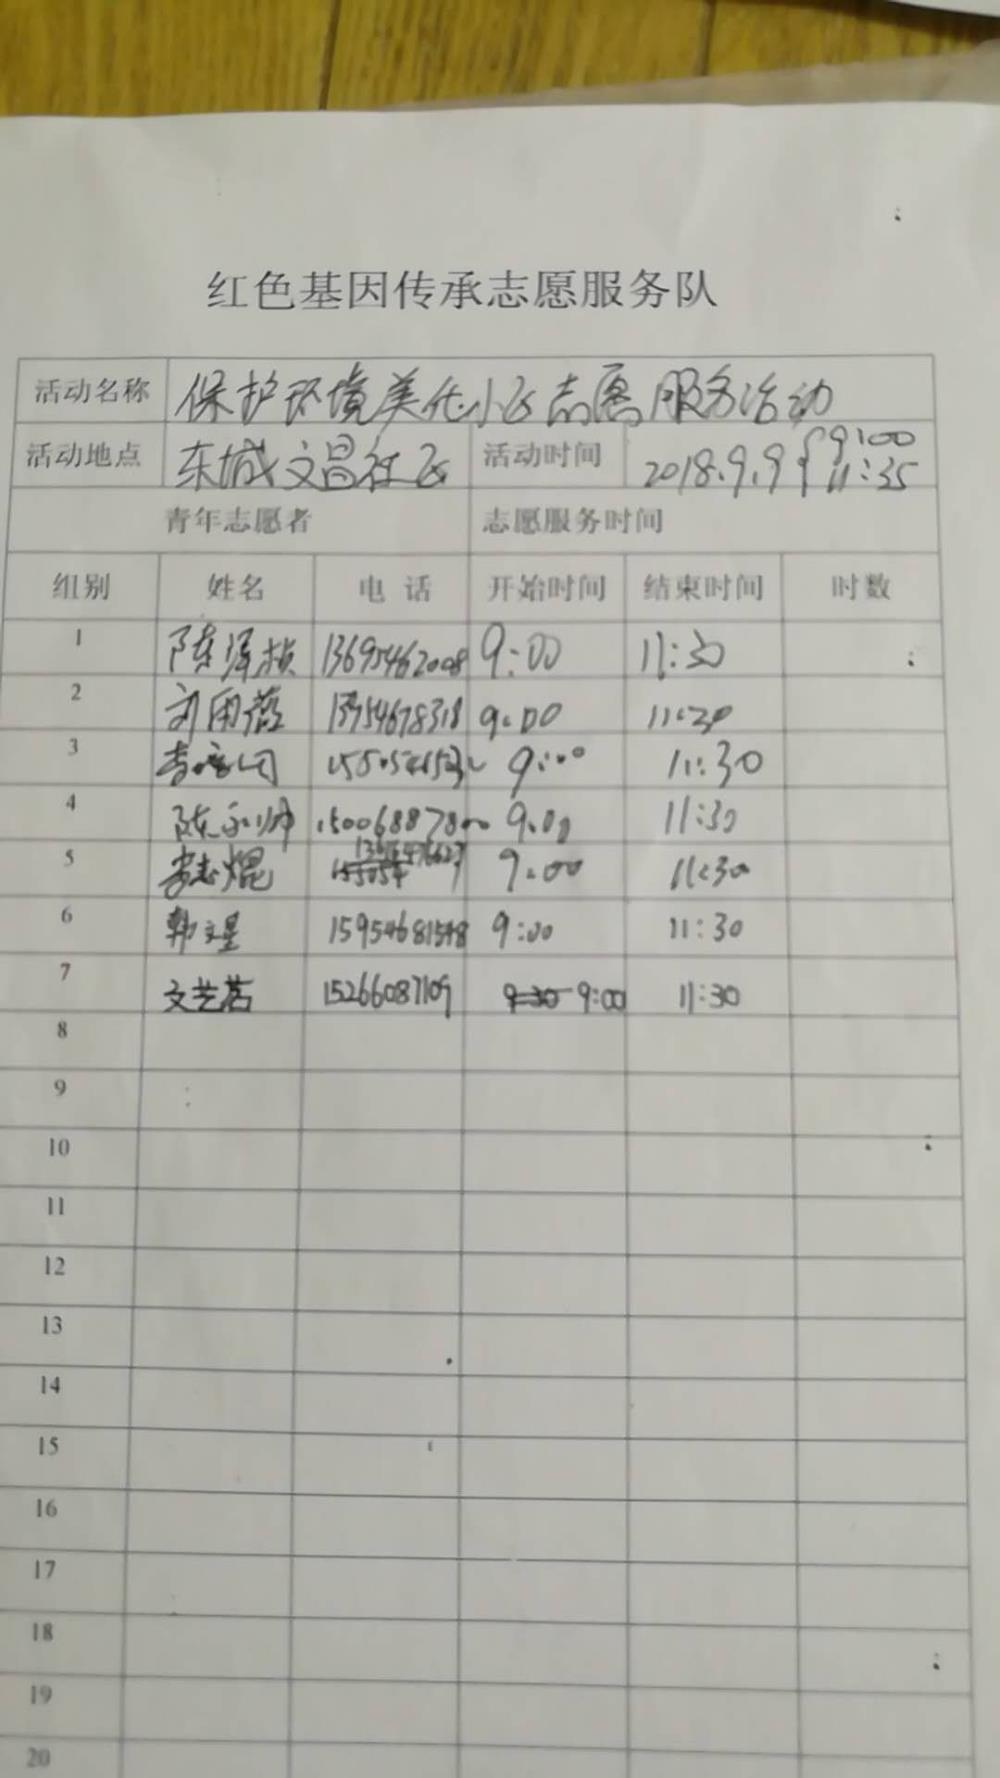 红色基因传承志愿服务队
活动名称 保护环境美化小区志愿服务活动
活动地点 东城文昌社区 活动时间 2018.9.9 9:00 11:35
青年志愿者 志愿服务时间
组别 姓名 电话 开始时间 结束时间 时数
1 陈泽桢 13695462008 9:00 11:30
2 刘雨蓓 13954678318 9:00 11:30
3 9:00 11:30
4 陈永帅 15006887800 9:00 11:30
5 李志焜 9:00 11:30
6 韩文星 15954681548 9:00 11:30
7 文艺茗 15266087109 9:30 9:00 11:30
8
9
10
11
12
13
14
15
16
17
18
19
20